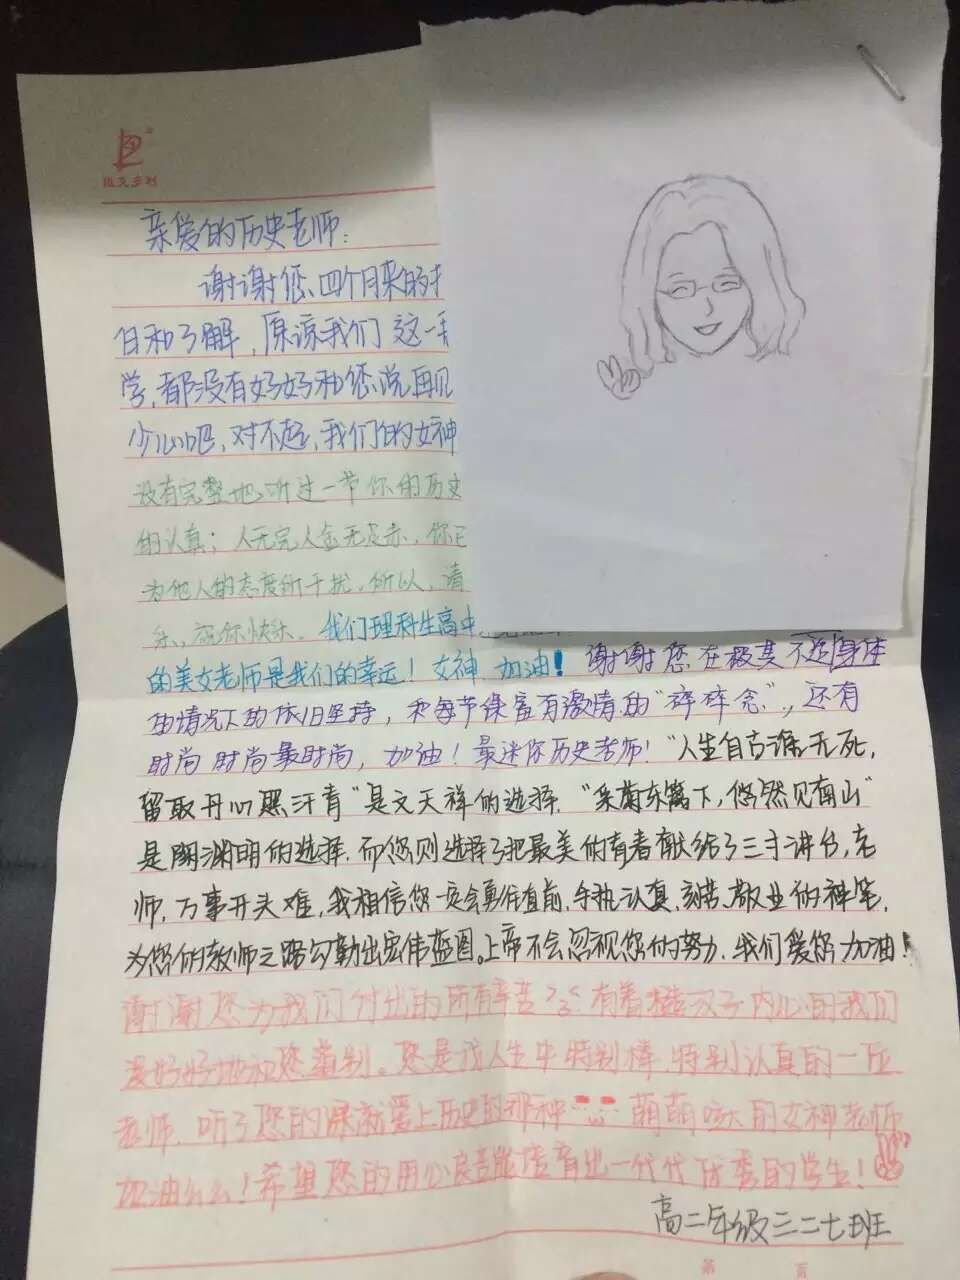 亲爱的历史老师:
谢谢您、四个月来的
日和了解,原谅我们这一
学,都没有好好和您说再见
少儿吧,对不起,我们的女神
没有完整地听过一节你的历史
的认真;人无完人金无足赤,你
为他人的态度所干扰。所以,请
乐,你快乐。我们理科生高中
的美女老师是我们的幸运!女神,加油!谢谢您在极其不适身体
的情况下的依旧坚持,和每节课富有激情的“碎碎念”,还有
时尚时尚最时尚,加油!最迷你历史老师!“人生自古谁无死,
留取丹心照汗青”是文天祥的选择,“采菊东篱下,悠然见南山”
是陶渊明的选择,而您则选择了把最美的青春献给了三寸讲台,老
师,万事开头难,我相信您一定会勇往直前,手执认真、刻苦、敬业的神笔,
为您的教师之路勾勒出宏伟蓝图。上帝不会忽视您的努力,我们爱您加油!
谢谢您为我们付出的所有辛苦>3<有着糙汉子内心的我们
没好好地和您道别。您是我人生中特别棒,特别认真的一位
老师,听了您的课就爱上历史的那种 萌萌哒的女神老师
加油么么!希望您的用心良苦能培育出一代代优秀的学生!
高二年级三二七班
第 页